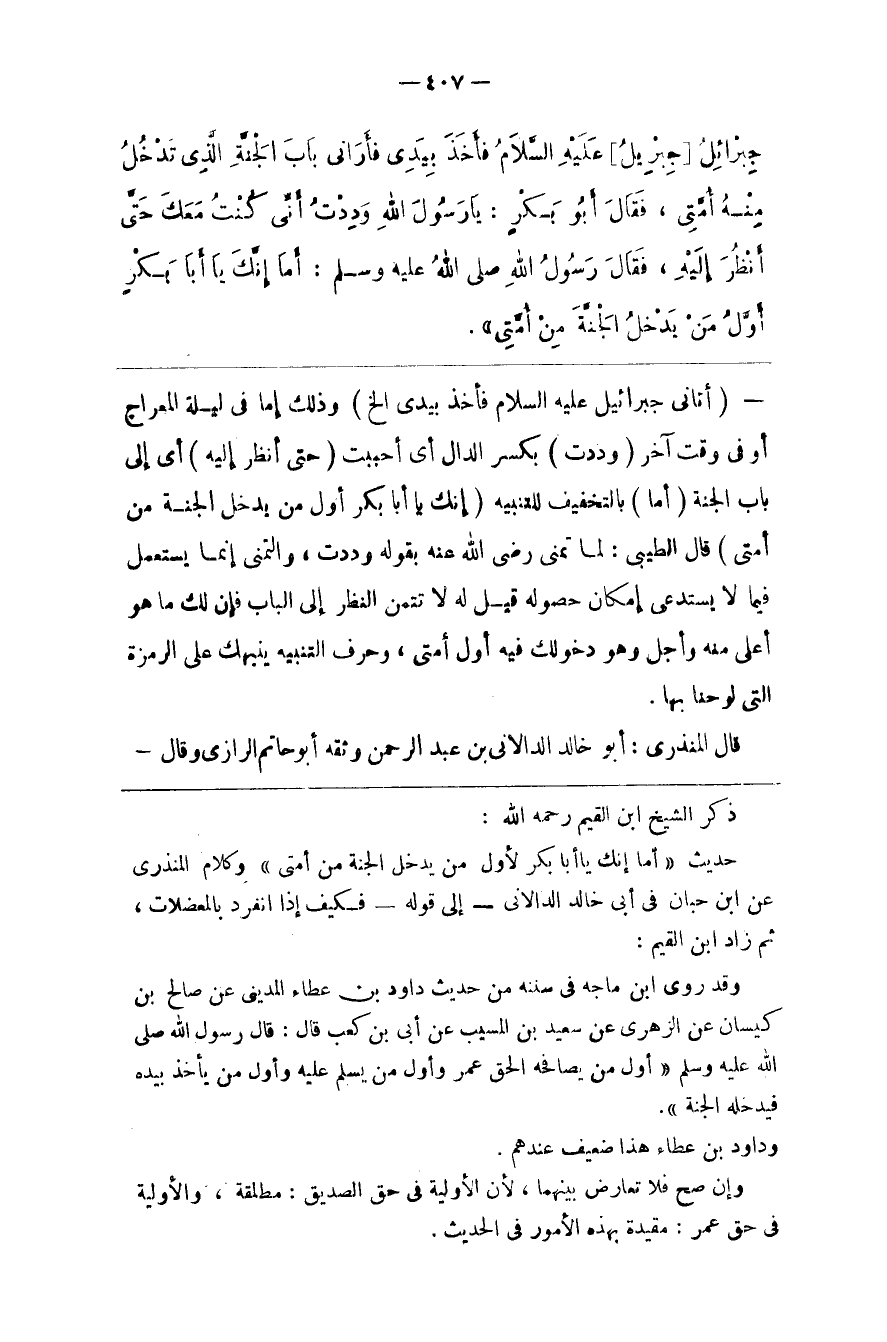 — ٤٠٧ —
جِبْرَائِلُ [جِبْرِيلُ] عَلَيْهِ السَّلاَمُ فأَخَذَ بِيَدِى فأَرَانى بابَ الجَنَّةِ الَّذِى تَدْخُلُ
مِنْـهُ أُمَّتِى ، فَقَالَ أَبُو بَـكْرٍ : يَارَسُولَ اللهِ وَدِدْتُ أَنِّى كُنْتُ مَعَكَ حَتَّى
أَنْظُرَ إِلَيْهِ ، فَقَالَ رَسُولُ اللهِ صلى اللهُ عليه وسـلم : أَمَا إِنَّكَ يَا أَبَا بَـكْرٍ
أَوَّلُ مَنْ يَدْخلُ الجَنَّةَ مِنْ أُمَّتِى» .
— ( أتانى جبرائيل عليه السلام فأخذ بيدى الخ ) وذلك إما فى ليـلة المعراج
أو فى وقت آخر ( وددت ) بكسر الدال أى أحببت ( حتى أنظر إليه ) أى إلى
باب الجنة ( أما ) بالتخفيف للتنبيه ( إنك يا أبا بكر أول من يدخل الجنـة من
أمتى ) قال الطيبى : لمـا تمنى رضى الله عنه بقوله وددت ، والتمنى إنمـا يستعمل
فيما لا يستدعى إمكان حصوله قيـل له لا تتمن النظر إلى الباب فإن لك ما هو
أعلى منه وأجل وهو دخولك فيه أول أمتى ، وحرف التنبيه ينبهك على الرمزة
التى لوحنا بها .
قال المنذرى : أبو خالد الدالانى بن عبد الرحمن وثقه أبوحاتم الرازى وقال —
ذكر الشيخ ابن القيم رحمه الله :
حديث « أما إنك ياأبا بكر لأول من يدخل الجنة من أمتى » وكلام المنذرى
عن ابن حبان فى أبى خالد الدالانى — إلى قوله — فـكيف إذا انفرد بالمعضلات ،
ثم زاد ابن القيم :
وقد روى ابن ماجه فى سننه من حديث داود بن عطاء المدينى عن صالح بن
كيسان عن الزهرى عن سعيد بن المسيب عن أبى بن كعب قال : قال رسول الله صلى
الله عليه وسلم « أول من يصافحه الحق عمر وأول من يسلم عليه وأول من يأخذ بيده
فيدخله الجنة ».
وداود بن عطاء هذا ضعيف عندهم .
وإن صح فلا تعارض بينهما ، لأن الأولية فى حق الصديق : مطلقة ، والأولية
فى حق عمر : مقيدة بهذه الأمور فى الحديث .